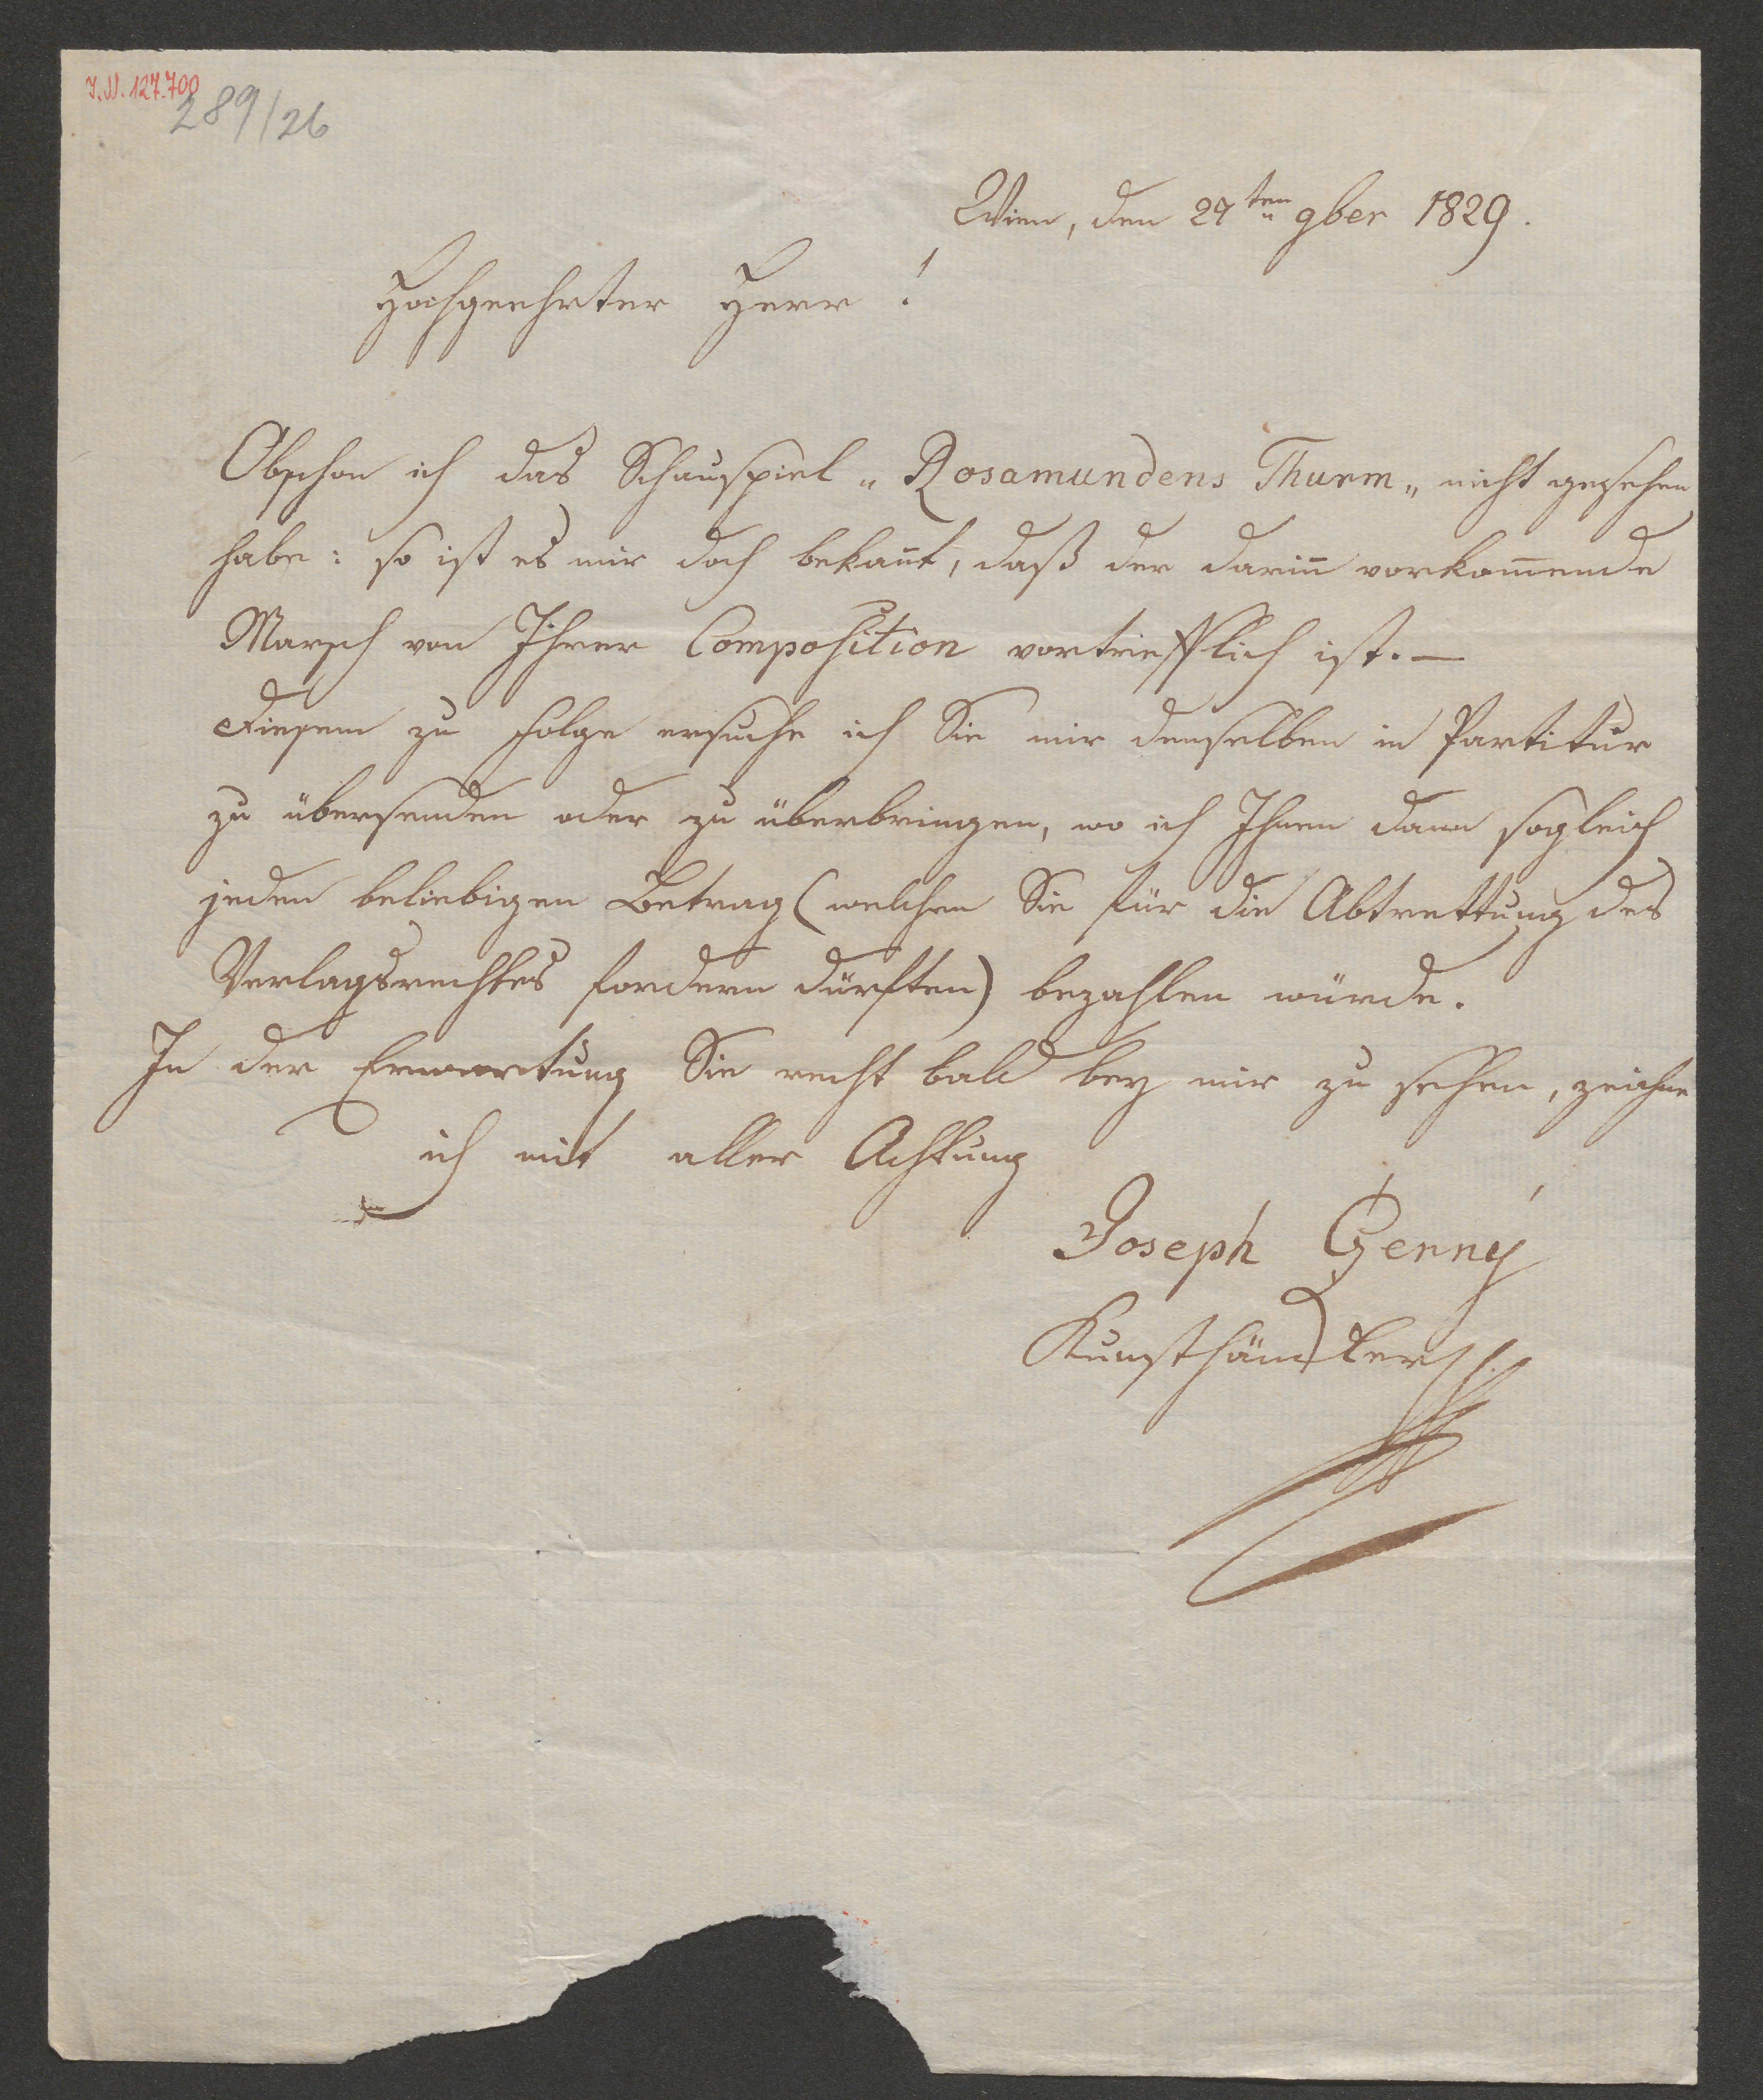 I.N. 127.700
289/26
Wien, den 27ten 9ber 1829.
Hochgeehrter Herr!
Obschon ich das Schauspiel „Rosamundens Thurm„ nicht gesehen
habe: so ist es mir doch bekan̄t, daß der darin̄ vorkom̄ende
Marsch von Ihrer Composition vortriefflich ist. —
Diesem zu Folge ersuche ich Sie mir denselben in Partitur
zu übersenden oder zu überbringen, wo ich Ihnen dann sogleich
jeden beliebigen Betrag (welchen Sie für die Abtrettung des
Verlagsrechtes fordern dürften) bezahlen würde.
In der Erwartung Sie recht bald bey mir zu sehen, zeichne
ich mit aller Achtung
Joseph Czerný
Kunsthändler